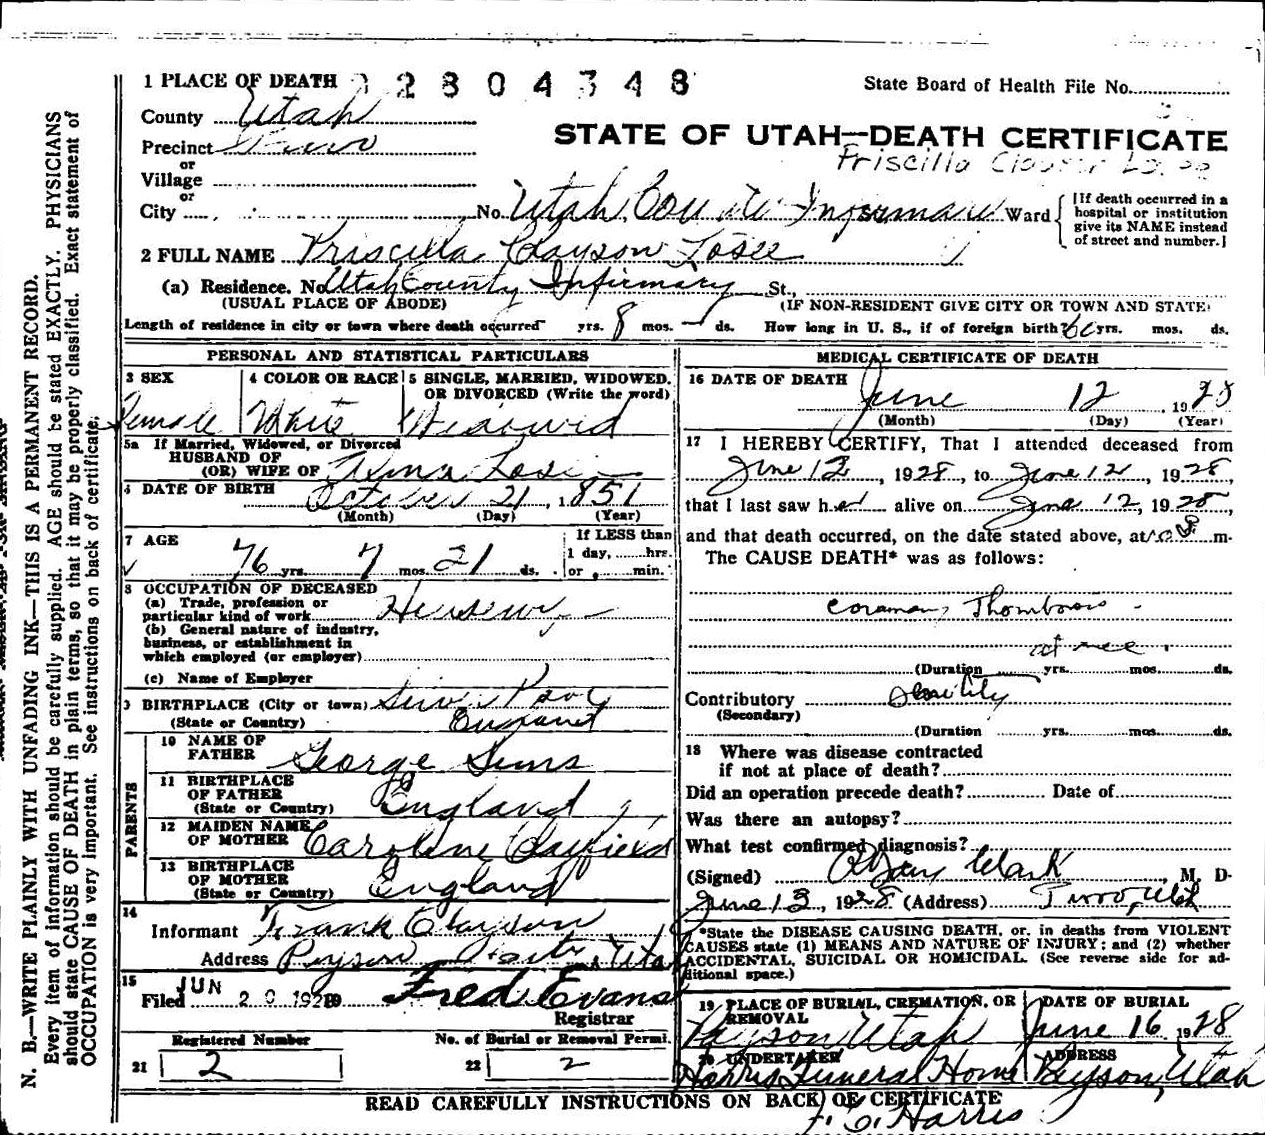 1 PLACE OF DEATH 22804348 State Board of Health File No.
County Utah
STATE OF UTAH—DEATH CERTIFICATE
Precinct Provo
Priscilla
or
Village
or
City No. Utah County Infirmary Ward
[If death occurred in a hospital or institution give its NAME instead of street and number.]
2 FULL NAME Priscilla Clayson Losee
(a) Residence. No. Utah County Infirmary St.,
(USUAL PLACE OF ABODE) (IF NON-RESIDENT GIVE CITY OR TOWN AND STATE)
Length of residence in city or town where death occurred yrs. 8 mos. — ds. How long in U. S., if of foreign birth? yrs. mos. ds.
PERSONAL AND STATISTICAL PARTICULARS
3 SEX 4 COLOR OR RACE 5 SINGLE, MARRIED, WIDOWED, OR DIVORCED (Write the word)
Female White Widowed
5a If Married, Widowed, or Divorced
HUSBAND OF
(OR) WIFE OF Alma Losee
6 DATE OF BIRTH October 21, 1851
(Month) (Day) (Year)
7 AGE 76 yrs. 7 mos. 21 ds.
If LESS than
1 day, hrs.
or min.
8 OCCUPATION OF DECEASED
(a) Trade, profession or
particular kind of work
(b) General nature of industry,
business, or establishment in
which employed (or employer)
(c) Name of Employer
9 BIRTHPLACE (City or town)
(State or Country) England
PARENTS
10 NAME OF
FATHER George Sims
11 BIRTHPLACE
OF FATHER
(State or Country) England
12 MAIDEN NAME
OF MOTHER Caroline
13 BIRTHPLACE
OF MOTHER
(State or Country) England
14
Informant Frank Clayson
Address Payson, Utah
15
Filed JUN 20 1928 Fred Evans
Registrar
Registered Number No. of Burial or Removal Permi.
21 2 22 2
MEDICAL CERTIFICATE OF DEATH
16 DATE OF DEATH June 12, 1928
(Month) (Day) (Year)
17 I HEREBY CERTIFY, That I attended deceased from
June 12, 1928, to June 12, 1928,
that I last saw her alive on June 12, 1928,
and that death occurred, on the date stated above, at m.
The CAUSE DEATH* was as follows:
(Duration yrs. mos. ds.
Contributory Senility
(Secondary)
(Duration yrs. mos. ds.
18 Where was disease contracted
if not at place of death?
Did an operation precede death? Date of
Was there an autopsy?
What test confirmed diagnosis?
(Signed) Clark, M. D-
June 13, 1928 (Address) Provo, Utah
*State the DISEASE CAUSING DEATH, or, in deaths from VIOLENT
CAUSES state (1) MEANS AND NATURE OF INJURY; and (2) whether
ACCIDENTAL, SUICIDAL OR HOMICIDAL. (See reverse side for ad-
ditional space.)
19 PLACE OF BURIAL, CREMATION, OR REMOVAL DATE OF BURIAL
Payson Utah June 16 1928
20 UNDERTAKER ADDRESS
Harris Funeral Home Payson, Utah
READ CAREFULLY INSTRUCTIONS ON BACK OF CERTIFICATE
Harris
N. B.—WRITE PLAINLY WITH UNFADING INK—THIS IS A PERMANENT RECORD.
Every item of information should be carefully supplied. AGE should be stated EXACTLY. PHYSICIANS
should state CAUSE OF DEATH in plain terms, so that it may be properly classified. Exact statement of
OCCUPATION is very important. See instructions on back of certificate.